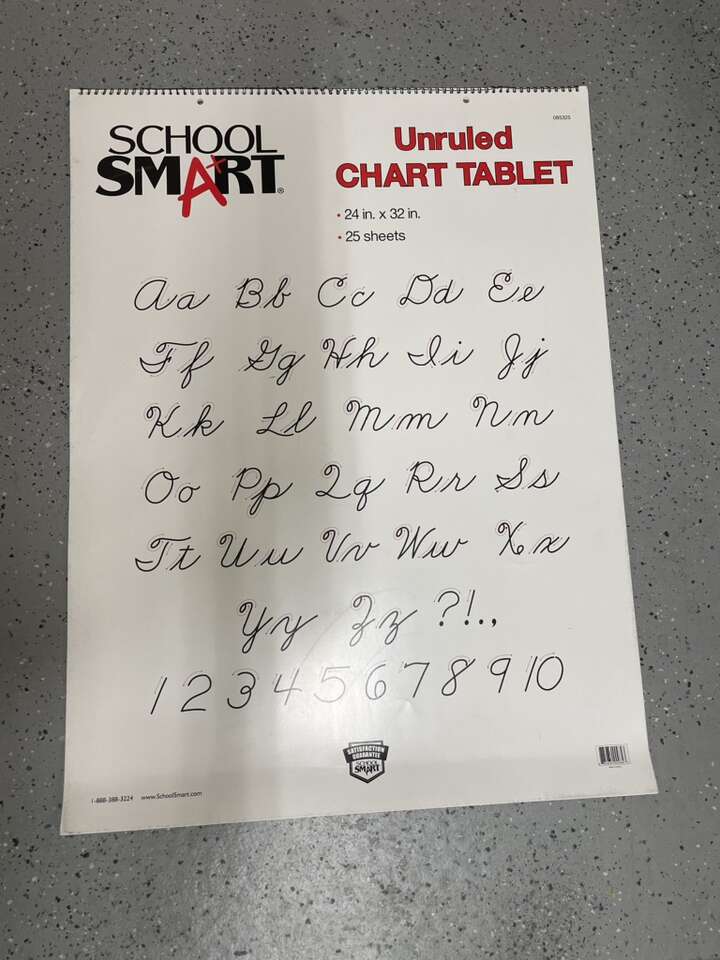 085325
SCHOOL
SMART®
Unruled
CHART TABLET
• 24 in. x 32 in.
• 25 sheets
Aa Bb Cc Dd Ee
Ff Gg Hh Ii Jj
Kk Ll Mm Nn
Oo Pp Qq Rr Ss
Tt Uu Vv Ww Xx
Yy Zz ?!.,
1 2 3 4 5 6 7 8 9 10
SATISFACTION
GUARANTEE
SCHOOL
SMART
1-888-388-3224 www.SchoolSmart.com